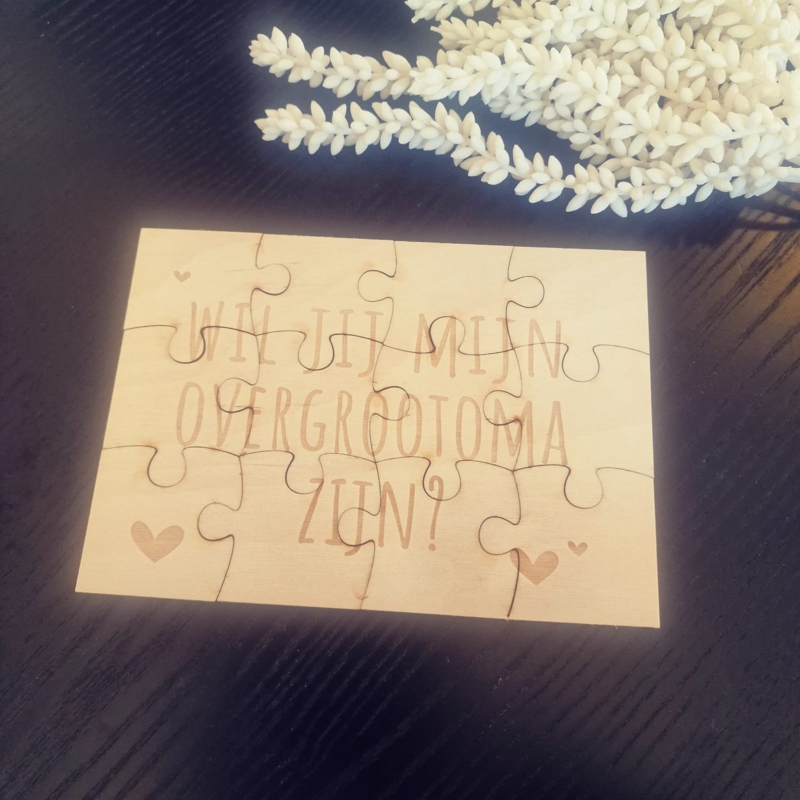 WIL JIJ MIJN
OVERGROOTOMA
ZIJN?